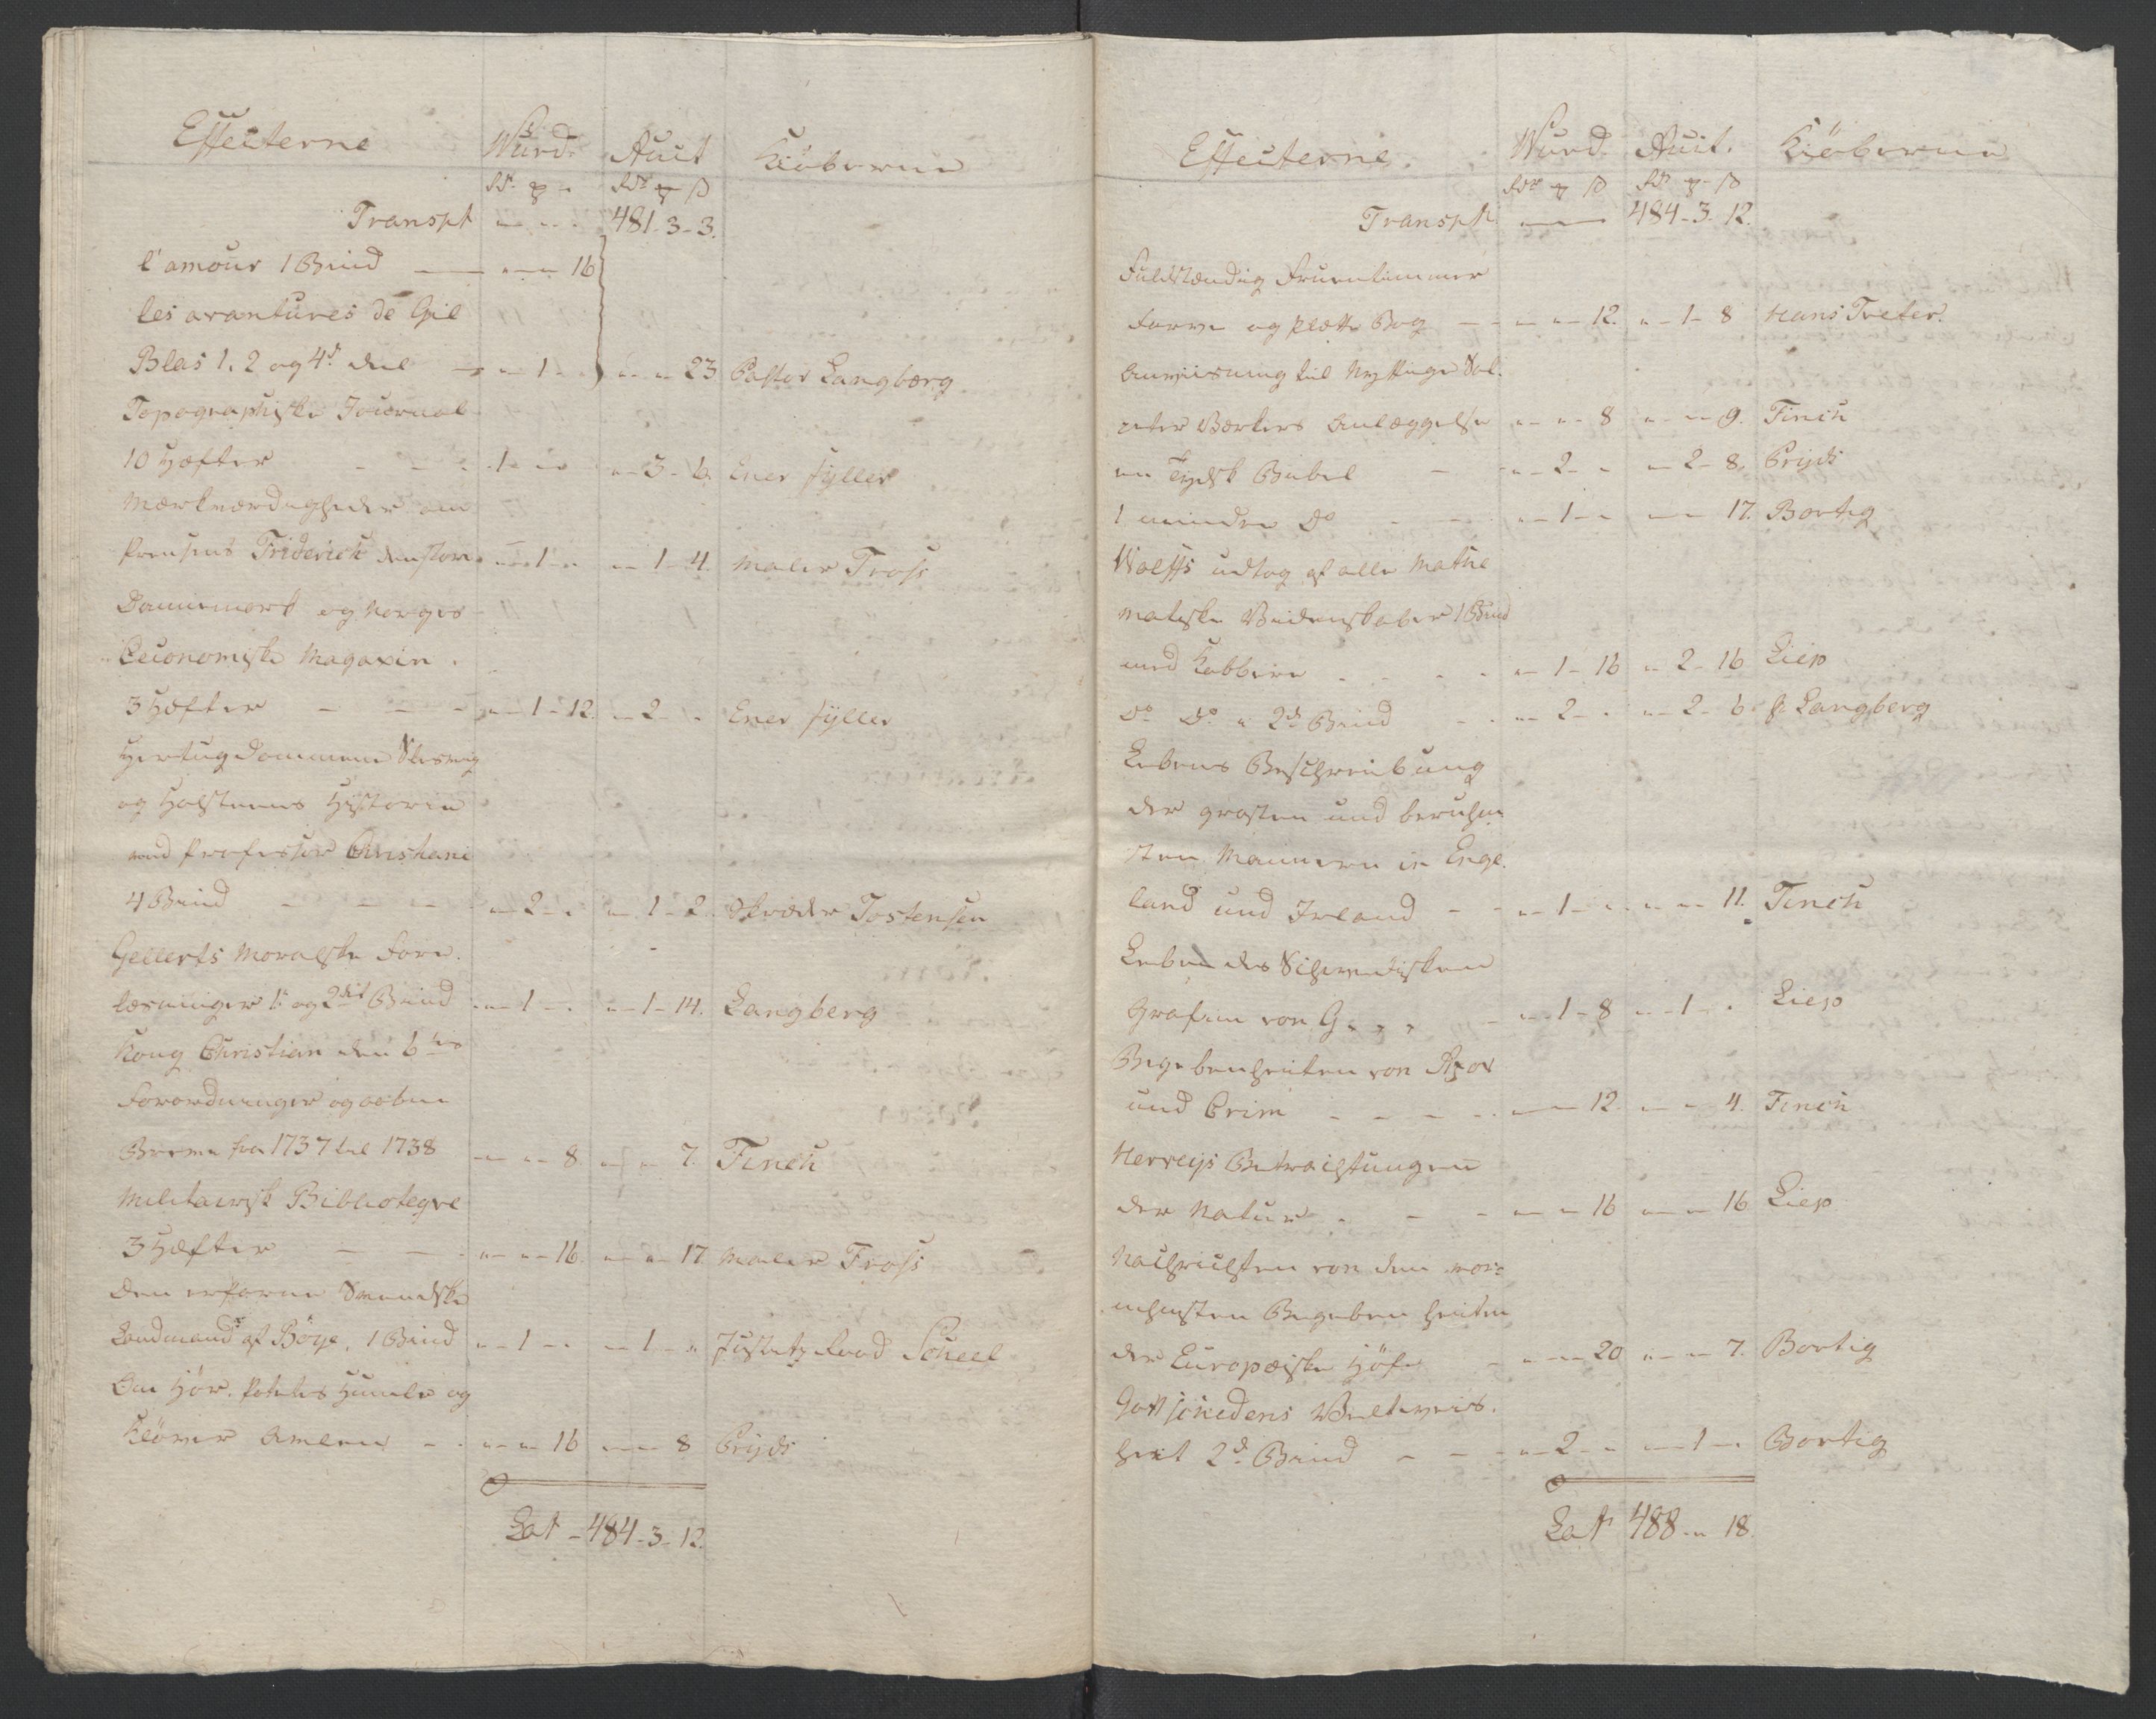 Effecterne Wurd. Auct Kiöberne
Rdr ort ß Rdr ort ß
Transpt " " " 481-3-3.
l'amour 1 Bind — " " 16
les avantures de Gil
Blas 1. 2 og 4de deel — " 1 " " " 23 Pastor Langberg
Topographiske Journal
10 Hæfter - - 1 " " " 3-6. Ener Hyller
Mærkværdigheder om
Preusens Friderich den store " 1 " " 1-4. Maler Tross
Dannemark og Norges
Oeconomiske Magazin.
3 Hæfter - - - " 1-12. " 2 " Ener Hyller
Hertugdommene Slesvig
og Holsteens Historie
ved Professor Christiani
4 Bind - - - " 2 " " 1-2. Skræder Tostensen
Gellerts Moralske fore-
læsninger 1. og 2det Bind " 1 " " 1-14. Langberg
Kong Christian den 6tes
Forordninger og aabne
Breve fra 1737 til 1738 " " 8 " " 7. Finch
Militairisk Biblioteqve
3 Hæfter - - " " 16. " " 17. Maler Tross
Den erfarne Svendske
Landmand af Böye, 1 Bind " 1 " " 1 " Justitz Raad Scheel
Om Hör. Potetes Humle og
Klöver Avlen - " " 16 " " 8 Pryds
Lat - 484-3-12.
Effecterne. Wurd. Auct. Kiöberne
Rdr ort ß Rdr ort ß
Transpt. — 484-3-12.
Fuldstændig Fruentimmer
Farve og plætte Bog - " " 12. " 1-8 Hans Treter.
Anviisning til Nyttige Sal-
peter Værkers Anlæggelse " " 8 " " 9. Finch
en Tydsk Bibel - " 2 " " 2-8. Pryds
1 mindre Do - - " 1 " " " 17. Bortig
Wolffs udtog af alle Mathe
matiske Videnskaber 1 Bind
med Kobbere - - " 1-16 " 2-16 Liep
Do Do " 2de Bind - " 2 " " 2-6 H. Langberg
Lebens Beschreibung
der grosten und beruhm
sten Mannern in Enge-
land und Irland - - " 1 " " " 11. Finch
Leben des Schwedisken
Grafinn von G. . . - " 1-8 " 1 " Liep
Begebenheiten von Azor
und Crim - - - - " " 12. " " 4. Finch
Herveys Betrachtungen
der Natur - - - " " 16 " " 16 Liep
Nachrichten von den vor-
nehmsten Begebenheiten
der Europæiske Höfe - " " 20 " " 7. Bortig
Gottschedens Weltweis-
heit 2de Bind - - - " 2 " " 1 " Bortig
Lat 488 " 18.